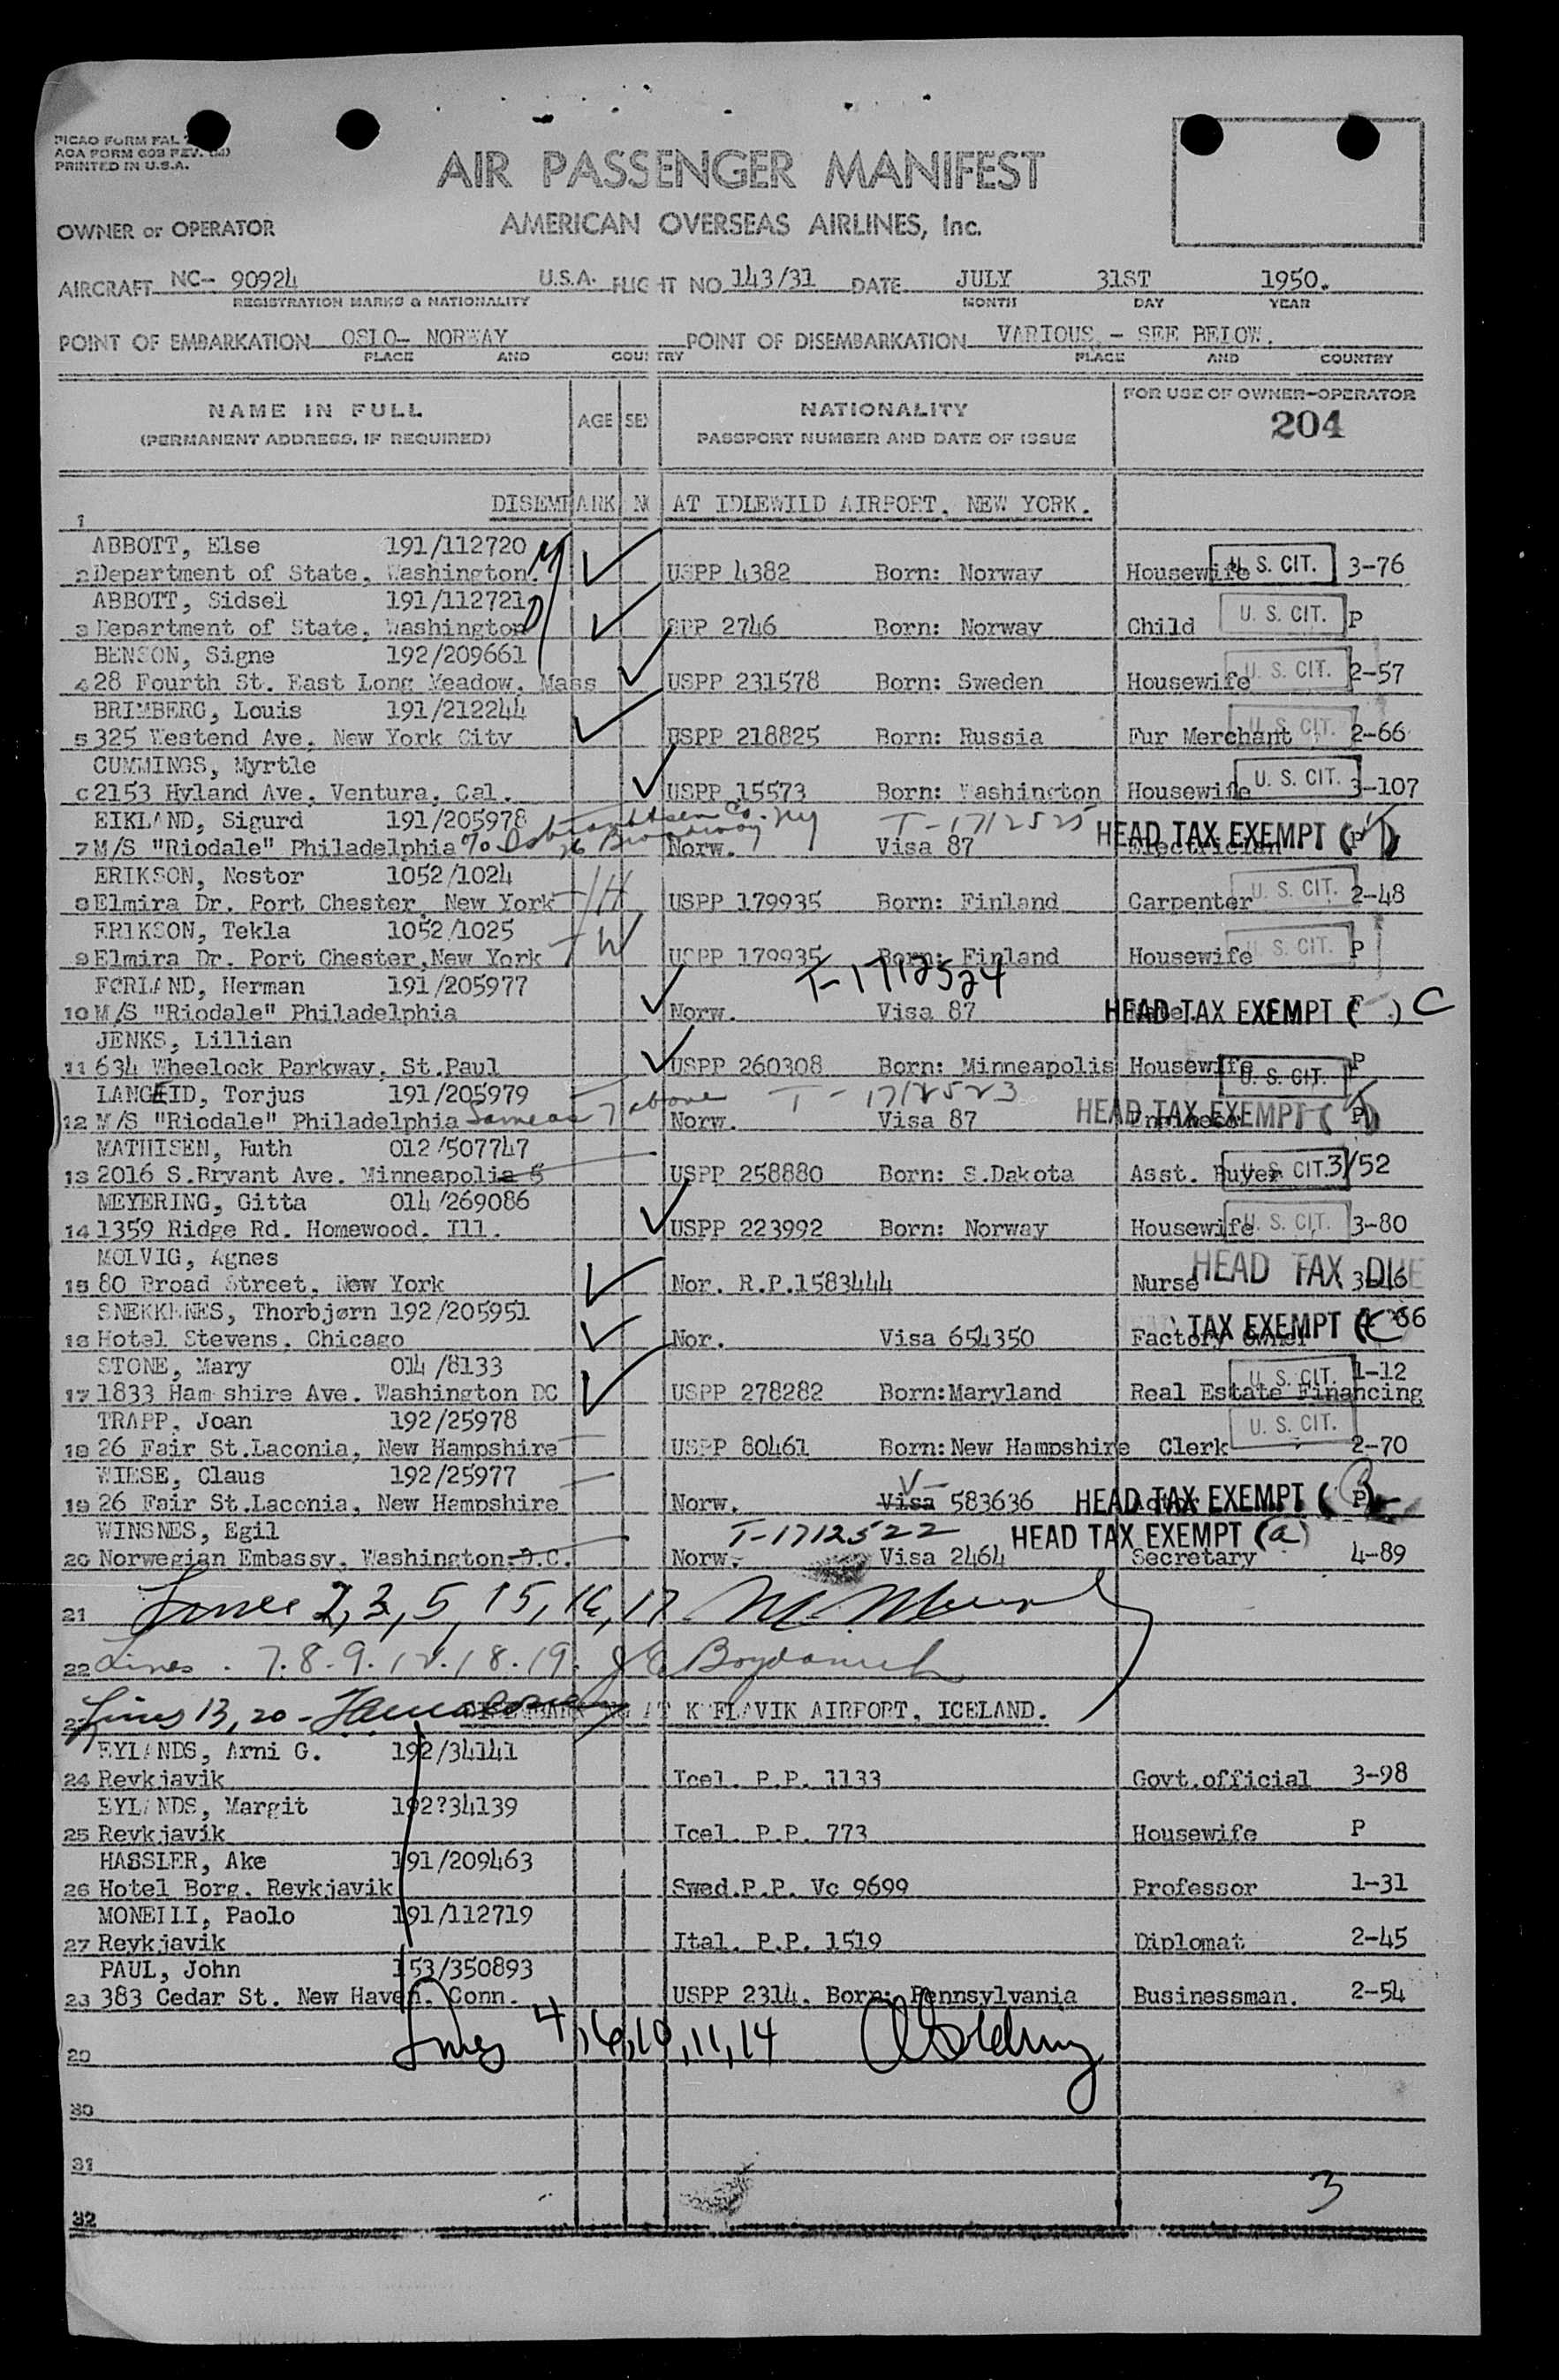 PICAO FORM FAL
AOA FORM 603 REV.
PRINTED IN U.S.A.
AIR PASSENGER MANIFEST
AMERICAN OVERSEAS AIRLINES, Inc.
OWNER or OPERATOR
AIRCRAFT NC-- 90924 U.S.A. FLIGHT NO. 143/31 DATE JULY 31ST 1950.
REGISTRATION MARKS & NATIONALITY MONTH DAY YEAR
POINT OF EMBARKATION OSLO- NORWAY POINT OF DISEMBARKATION VARIOUS - SEE BELOW.
PLACE AND COUNTRY PLACE AND COUNTRY
NAME IN FULL AGE SEX NATIONALITY FOR USE OF OWNER-OPERATOR
(PERMANENT ADDRESS, IF REQUIRED) PASSPORT NUMBER AND DATE OF ISSUE 204
1 DISEMBARKING AT IDLEWILD AIRPORT, NEW YORK.
ABBOTT, Else 191/112720
2 Department of State, Washington. USPP 4382 Born: Norway Housewife U. S. CIT. 3-76
ABBOTT, Sidsel 191/112721
3 Department of State, Washington SPP 2746 Born: Norway Child U. S. CIT. P
BENSON, Signe 192/209661
4 28 Fourth St. East Long Meadow, Mass USPP 231578 Born: Sweden Housewife U. S. CIT. 2-57
BRIMBERG, Louis 191/212244
5 325 Westend Ave. New York City USPP 218825 Born: Russia Fur Merchant U. S. CIT. 2-66
CUMMINGS, Myrtle
6 2153 Hyland Ave, Ventura, Cal. USPP 15573 Born: Washington Housewife U. S. CIT. 3-107
EIKLAND, Sigurd 191/205978 T-1712525 HEAD TAX EXEMPT
7 M/S "Riodale" Philadelphia % Broadway Norw. Visa 87 Electrician P
ERIKSON, Nestor 1052/1024
8 Elmira Dr. Port Chester, New York USPP 179935 Born: Finland Carpenter U. S. CIT. 2-48
ERIKSON, Tekla 1052/1025
9 Elmira Dr. Port Chester, New York USPP 179935 Born: Finland Housewife U. S. CIT. P
FORLAND, Herman 191/205977 T-1712524
10 M/S "Riodale" Philadelphia Norw. Visa 87 HEAD TAX EXEMPT ( ) C
JENKS, Lillian
11 634 Wheelock Parkway, St.Paul USPP 260308 Born: Minneapolis Housewife U. S. CIT. P
LANGEID, Torjus 191/205979 T-1712523
12 M/S "Riodale" Philadelphia Same as 7 above Norw. Visa 87 HEAD TAX EXEMPT P
MATHISEN, Ruth 012/507747
13 2016 S.Bryant Ave. Minneapolis 5 USPP 258880 Born: S.Dakota Asst. Buyer U. S. CIT. 3/52
MEYERING, Gitta 014/269086
14 1359 Ridge Rd. Homewood, Ill. USPP 223992 Born: Norway Housewife U. S. CIT. 3-80
MOLVIG, Agnes
15 80 Broad Street, New York Nor. R.P.1583444 Nurse HEAD TAX DUE
SNEKKENES, Thorbjørn 192/205951
16 Hotel Stevens, Chicago Nor. Visa 654350 Factory Owner TAX EXEMPT 66
STONE, Mary 014/8133 U. S. CIT. 1-12
17 1833 Ham shire Ave. Washington DC USPP 278282 Born:Maryland Real Estate Financing
TRAPP, Joan 192/25978 U. S. CIT.
18 26 Fair St.Laconia, New Hampshire USPP 80461 Born:New Hampshire Clerk 2-70
WIESE, Claus 192/25977
19 26 Fair St.Laconia, New Hampshire Norw. Visa 583636 HEAD TAX EXEMPT P
WINSNES, Egil T-1712522 HEAD TAX EXEMPT (a)
20 Norwegian Embassy, Washington D.C. Norw. Visa 2464 Secretary 4-89
21 Lines 2, 3, 5, 15, 16, 17
22 Lines . 7.8.9.12.18.19.
Lines 13, 20 - DISEMBARKING AT KEFLAVIK AIRPORT, ICELAND.
EYLANDS, Arni G. 192/34141
24 Reykjavik Icel. P.P. 1133 Govt.official 3-98
EYLANDS, Margit 192?34139
25 Reykjavik Icel. P.P. 773 Housewife P
HASSLER, Ake 191/209463
26 Hotel Borg. Reykjavik Swed.P.P. Vc 9699 Professor 1-31
MONEILI, Paolo 191/112719
27 Reykjavik Ital. P.P. 1519 Diplomat 2-45
PAUL, John 153/350893
28 383 Cedar St. New Haven, Conn. USPP 2314, Born: Pennsylvania Businessman. 2-54
29 Lines 4, 6, 10, 11, 14
30
31
32 3